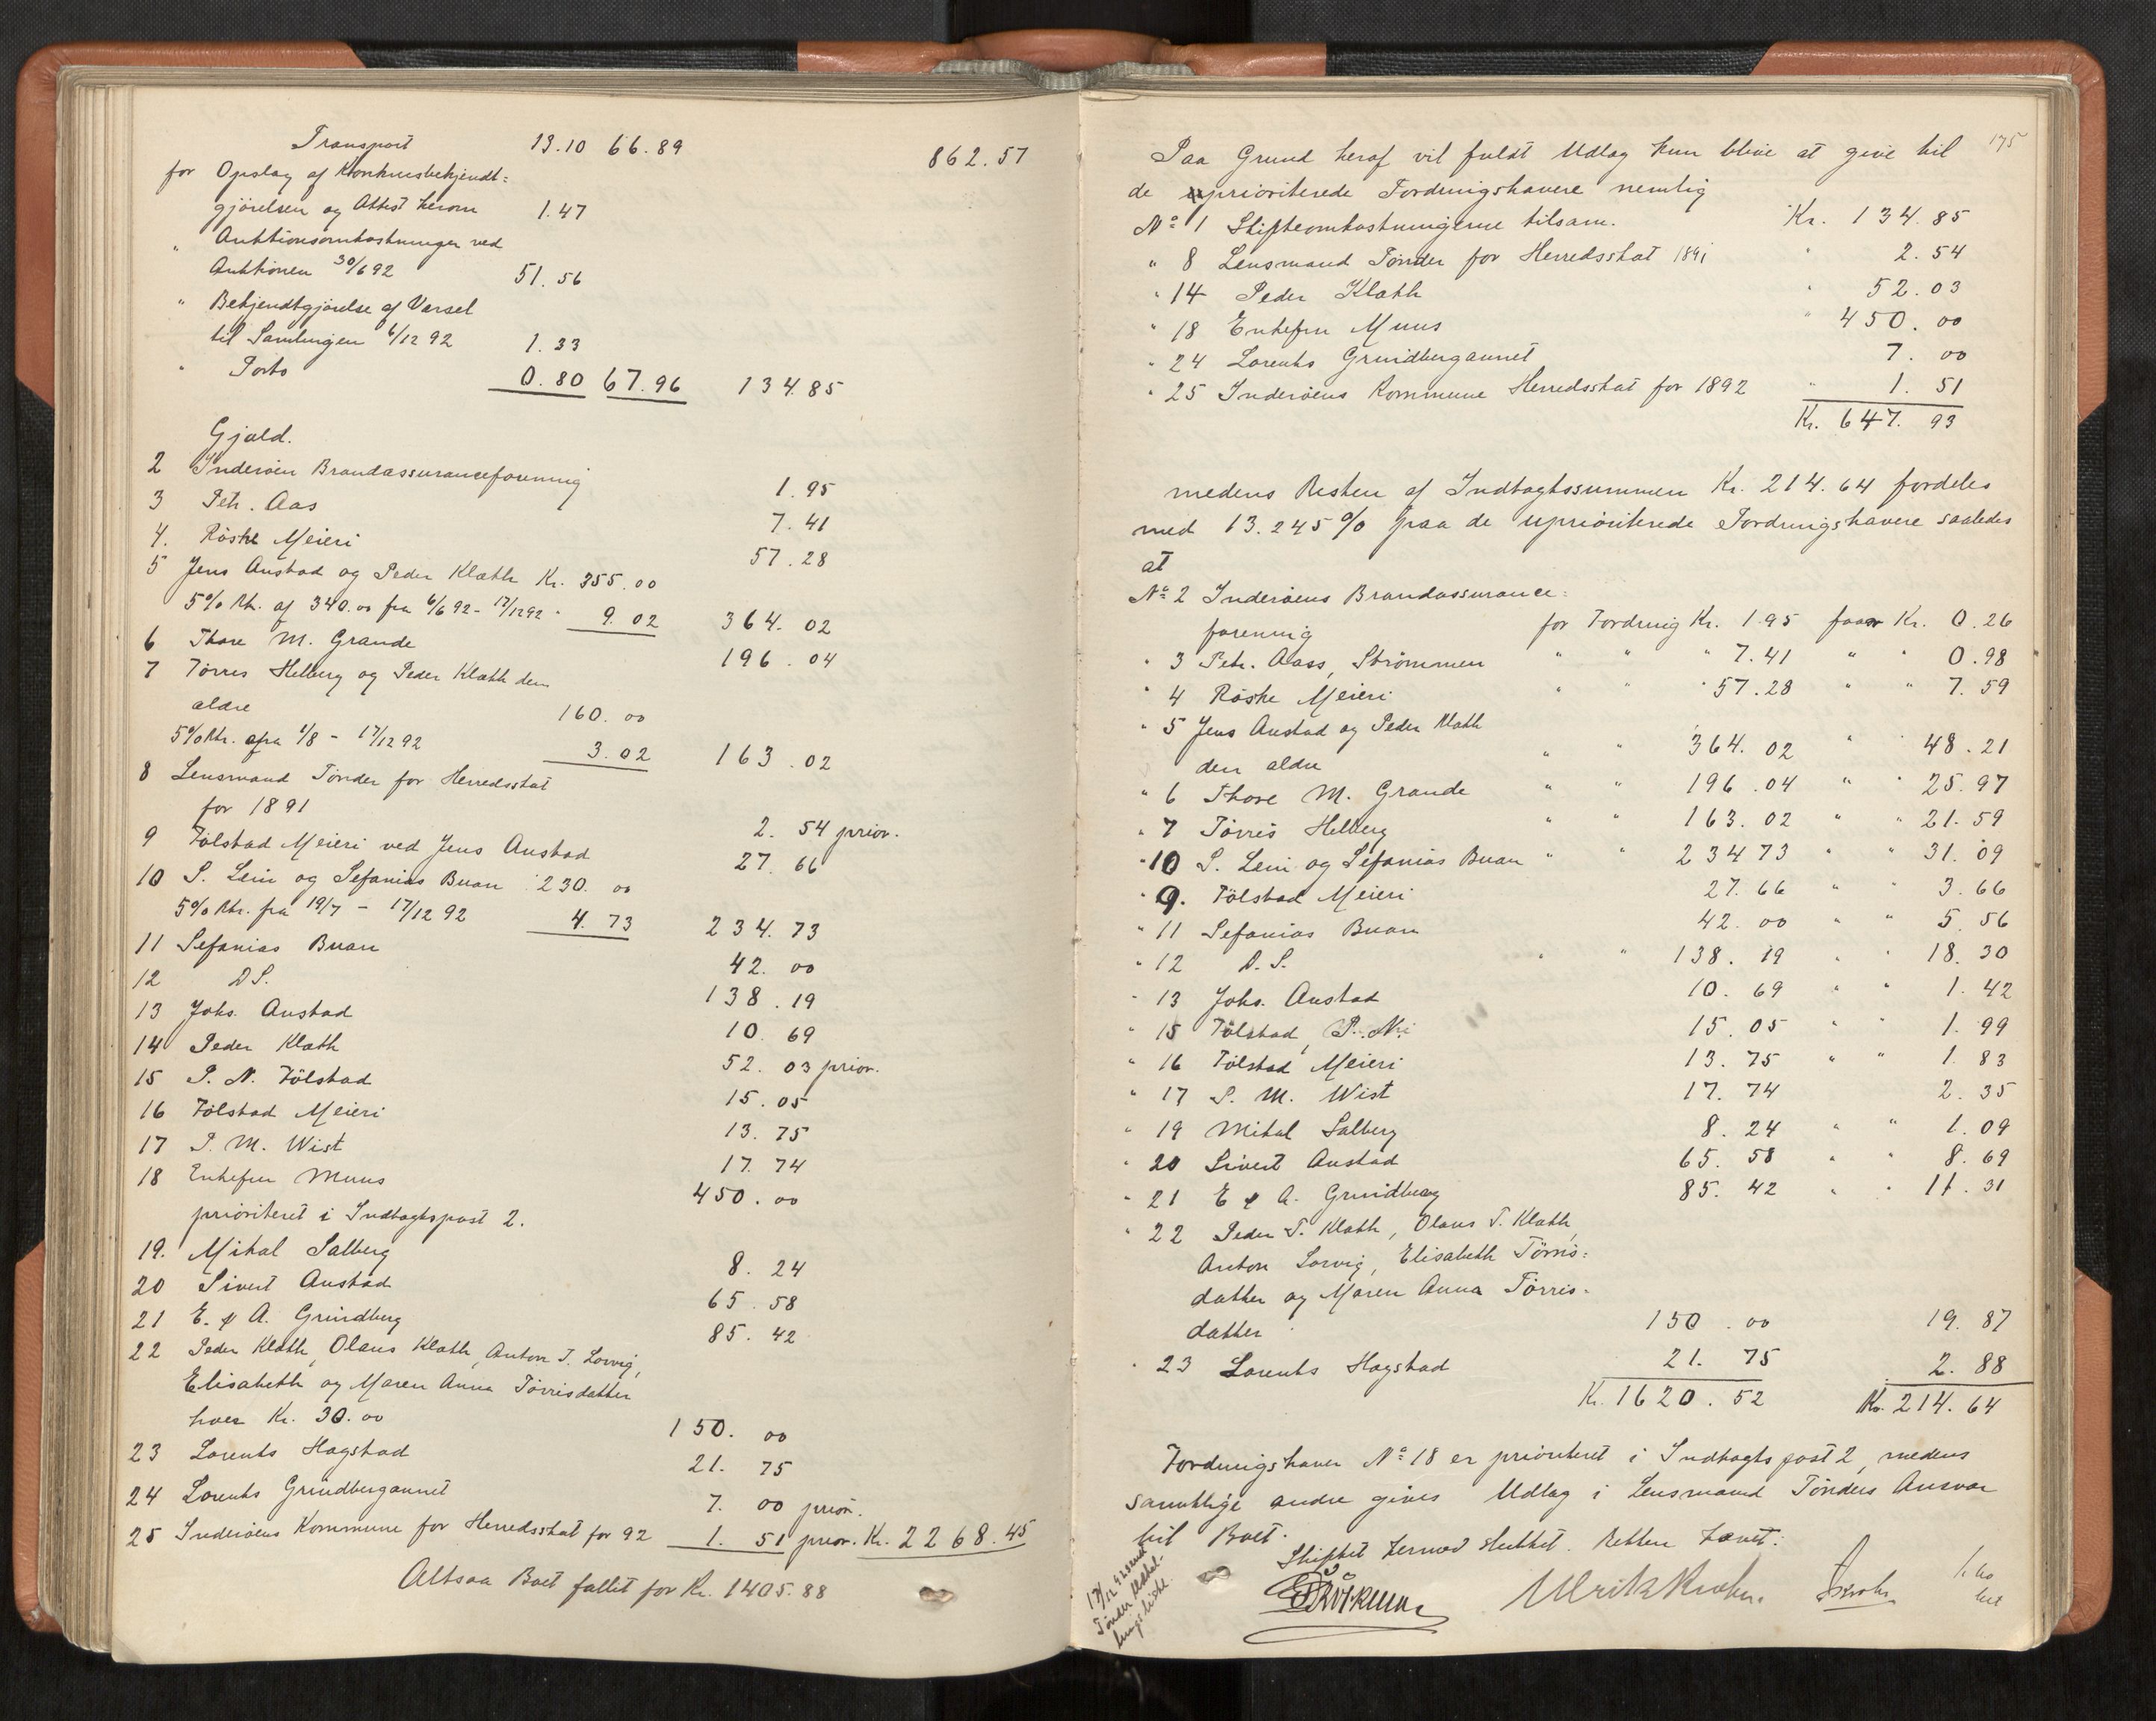 Transport 13.10 66.89 862.57
for Opslag af Konkursbekjendt=
gjörelsen og Attest herom 1.47
" Auktionsomkostninger ved
Auktionen 30/6 92 51.56
" Bekjendtgjörelse af Varsel
til Samlingen 6/12 92 1.33
" Porto 0.80 67.96 134.85
Gjæld.
2 Inderöen Brandassuranceforening 1.95
3 Petr. Aas 7.41
4. Röske Meieri 57.28
5 Jens Austad og Peder Klæth Kr. 355.00
5% Rt. af 340.00 fra 6/6 92 - 17/12 92 " 9.02 364.02
6 Thore M. Grande 196.04
7 Törres Helberg og Peder Klæth den
ældre 160.00
5% Rtr. fra 1/8 - 17/12 92 3.02 163.02
8 Lensmand Tönder for Herredsskat
for 1891 2.54 prior.
9 Tölstad Meieri ved Jens Austad 27.66
10 P. Lein og Sefanias Buan 230.00
5% Rtr. fra 19/7 - 17/12 92 4.73 234.73
11 Sefanias Buan 42.00
12 D.S. 138.19
13 Johs. Austad 10.69
14 Peder Klæth 52.03 prior.
15 P. N. Tölstad 15.05
16 Tölstad Meieri 13.75
17 P. M. Wist 17.74
18 Enkefru Muus 450.00
prioriteret i Indtægtspost 2.
19. Mikal Salberg 8.24
20 Sivert Austad 65.58
21 E. & A. Grindberg 85.42
22 Peder Klæth, Olaus Klæth, Anton T. Lorvig,
Elisabeth og Maren Anna Törrisdatter
hver Kr. 30.00 150.00
23 Lorents Hagstad 21.75
24 Lorents Grindbergaunet 7.00 prior.
25 Inderöens Kommune for Herredsskat for 92 1.51 prior. Kr. 2268.45
Altsaa Boet fallit for Kr. 1405.88
175
Paa Grund heraf vil fuldt Udlæg kun blive at give til
de prioriterede Fordringshavere nemlig
No 1 Skifteomkostningerne tilsam. Kr. 134.85
" 8 Lensmand Tönder for Herredsskat 1891 " 2.54
" 14 Peder Klæth " 52.03
" 18 Enkefru Muus " 450.00
" 24 Lorents Grindbergaunet 7.00
" 25 Inderöens Kommune Herredsskat for 1892 " 1.51
Kr. 647.93
medens Resten af Indtægtssummen Kr. 214.64 fordeles
med 13.245% paa de uprioriterede Fordringshavere saaledes
at
No 2 Inderöens Brandassurance=
forening for Fordring Kr. 1.95 faar Kr. 0.26
" 3 Petr. Aass, Strömmen " " " 7.41 " " 0.98
" 4 Röske Meieri " " " 57.28 " " 7.59
" 5 Jens Austad og Peder Klæth
den ældre " " 364.02 " " 48.21
" 6 Thore M. Grande " " 196.04 " " 25.97
" 7 Törris Helberg " " 163.02 " " 21.59
" 10 P. Lein og Sefanias Buan " " 234 73 " " 31.09
" 9. Tölstad Meieri 27.66 " " 3.66
" 11 Sefanias Buan 42.00 " " 5.56
" 12 D.S. " " 138.19 " " 18.30
" 13 Johs. Austad 10.69 " " 1.42
" 15 Tölstad, P. N. 15.05 " " 1.99
" 16 Tölstad Meieri 13.75 " " 1.83
" 17 P. M. Wist 17.74 2.35
" 19 Mikal Salberg 8.24 " " 1.09
" 20 Sivert Austad 65.58 " " 8.69
" 21 E & A. Grindberg 85.42 " " 11.31
" 22 Peder T. Klæth, Olaus T. Klæth,
Anton Lorvig, Elisabeth Törris=
datter og Maren Anna Törris=
datter 150.00 19.87
" 23 Lorents Hagstad 21.75 2.88
Kr. 1620.52 Kr. 214.64
Fordringshaver No 18 er prioriteret i Indtægtspost 2, medens
samtlige andre gives Udlæg i Lensmand Tönders Ansvar
til Boet.
Skiftet hermed sluttet. Retten hævet.
17/12 92 sendt
Tönder
Ulrik Krohn.